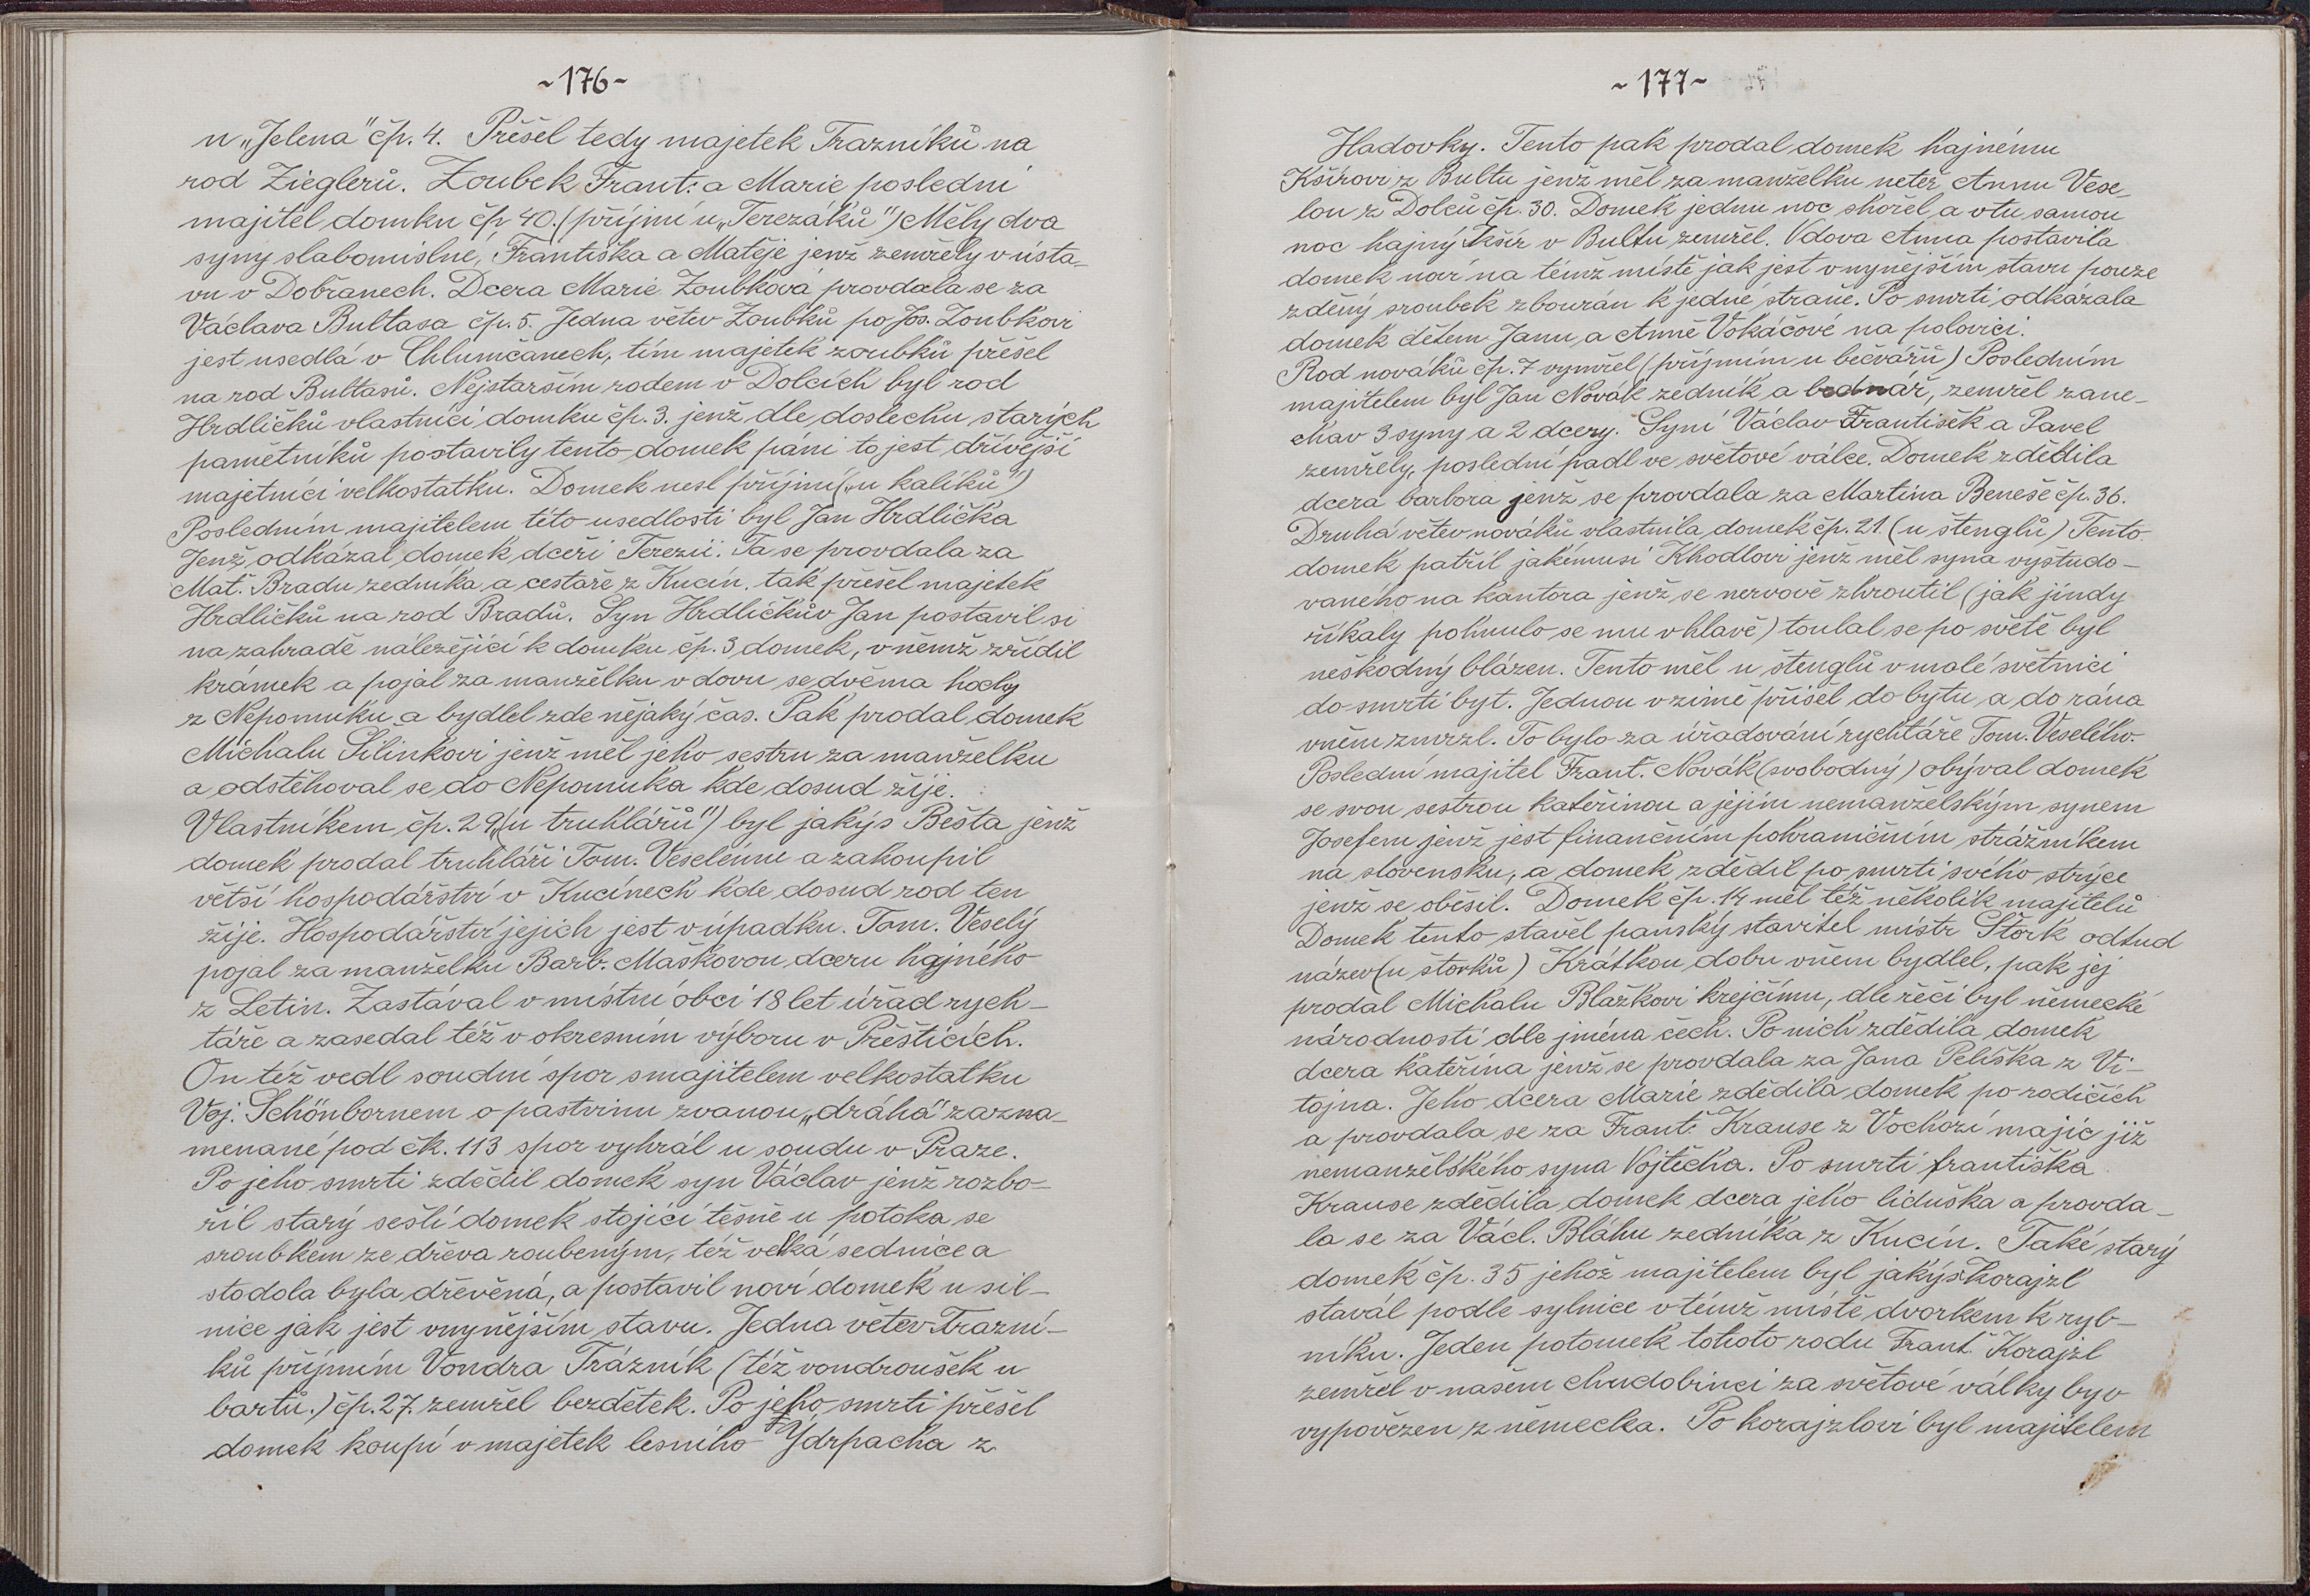 ~176~
u „Jelena" čp. 4. Přešel tedy majetek Trazníků na
rod Zieglerů. Zoubek Frant: a Marie poslední
majitel domku čp 40. (příjmí u „Terezáků") Měly dva
syny slabomislné, Františka a Matěje jenž zemřely v ústa_
vu v Dobřanech. Dcera Marie Zoubková provdala se za
Václava Bultasa čp. 5. Jedna větev Zoubků po Jos. Zoubkovi
jest usedlá v Chlumčanech, tím majetek zoubků přešel
na rod Bultasů. Nejstarším rodem v Dolcích byl rod
Hrdličků vlastnící domku čp. 3. jenž dle doslechu starých
pamětníků postavily tento domek páni to jest dřívější
majetníci velkostatku. Domek nesl příjmí („u kalíků")
Posledním majitelem této usedlosti byl Jan Hrdlička
Jenž odkázal domek dceři Terezii. Ta se provdala za
Mat. Bradu zedníka a cestáře z Kucín, tak přešel majetek
Hrdličků na rod Bradů. Syn Hrdličkův Jan postavil si
na zahradě náležející k domku čp. 3 domek, v němž zřídil
krámek a pojal za manželku vdovu se dvěma hochy
z Nepomuku a bydlel zde nějaký čas. Pak prodal domek
Michalu Šilinkovi jenž měl jeho sestru za manželku
a odstěhoval se do Nepomuka kde dosud žije.
Vlastníkem čp. 29 („u truhlářů") byl jakýs Bešta jenž
domek prodal truhláři Tom. Veselému a zakoupil
větší hospodářství v Kucínech kde dosud rod ten
žije. Hospodářství jejich jest v úpadku. Tom. Veselý
pojal za manželku Barb. Maškovou dceru hajného
z Letin. Zastával v místní obci 18 let úřad rych-
táře a zasedal též v okresním výboru v Přešticích.
On též vedl soudní spor s majitelem velkostatku
Voj. Schönbornem o pastvinu zvanou „dráhá" zazna_
menané pod čk. 113 spor vyhrál u soudu v Praze.
Po jeho smrti zdědil domek syn Václav jenž rozbo-
řil starý sešlí domek stojící těsně u potoka se
sroubkem ze dřeva roubeným, též velká sednice a
stodola byla dřevěná, a postavil noví domek u sil-
nice jak jest vnynějším stavu. Jedna větev Trazní-
ků příjmím Vondra Trázník (též vondroušek u
bartů.) čp. 27. zemřel bezdětek. Po jeho smrti přešel
domek koupí v majetek lesního Ydrpacha z
~177~
Hadovky. Tento pak prodal domek hajnému
Kšírovi z Bultu jenž měl za manželku neteř Annu Vese_
lou z Dolců čp. 30. Domek jednu noc shořel a vtu samou
noc hajný Kšír v Bultu zemřel. Vdova Anna postavila
domek noví na témž místě jak jest vnynějším stavu pouze
zděný sroubek zbourán k jedné straně. Po smrti odkázala
domek dětem Janu a Anně Vokáčové na polovici.
Rod nováků čp. 7 vymřel (příjmím u bečvářů) Posledním
majitelem byl Jan Novák zedník a bednář, zemřel zane-
chav 3 syny a 2 dcery. Syní Václav František a Pavel
zemřely, poslední padl ve světové válce. Domek zdědila
dcera barbora jenž se provdala za Martina Beneše čp. 36.
Druhá větev nováků vlastnila domek čp. 21. (u štenglů) Tento
domek patřil jakémusi Khodlovi jenž měl syna vyštudo-
vaného na kantora jenž se nervově zhroutil (jak jindy
říkaly pohnulo se mu v hlavě) toulal se po světě byl
neškodný blázen. Tento měl u štenglů v malé světnici
do smrti byt. Jednou v zimě přišel do bytu a do rána
vněm zmrzl. To bylo za úřadování rychtáře Tom. Veselého.
Poslední majitel Frant. Novák (svobodný) obýval domek
se svou sestrou kateřinou a jejím nemanželským synem
Josefem jenž jest finančním pohraničním strážníkem
na slovensku, a domek zdědil po smrti svého strýce
jenž se oběsil. Domek čp. 14 měl též několik majitelů
Domek tento stavěl panský stavitel mistr Štork odtud
název (u štorků) Krátkou dobu vněm bydlel, pak jej
prodal Michalu Blažkovi krejčímu, dle řeči byl německé
národnosti dle jména čech. Po nich zdědila domek
dcera kateřina jenž se provdala za Jana Peliška z Vi-
tojna. Jeho dcera Marie zdědila domek po rodičích
a provdala se za Frant. Krause z Vochozí majic již
nemanželského syna Vojtěcha. Po smrti františka
Krause zdědila domek dcera jeho liduška a provda_
la se za Václ. Bláhu zedníka z Kucín. Také starý
domek čp. 35 jehož majitelem byl jakýs Korajzl
stavál podle sylnice vtémž místě dvorkem k ryb-
níku. Jeden potomek tohoto rodu Frant. Korajzl
zemřel v našem chudobinci za světové války byv
vypovězen z německa. Po korajzlovi byl majitelem